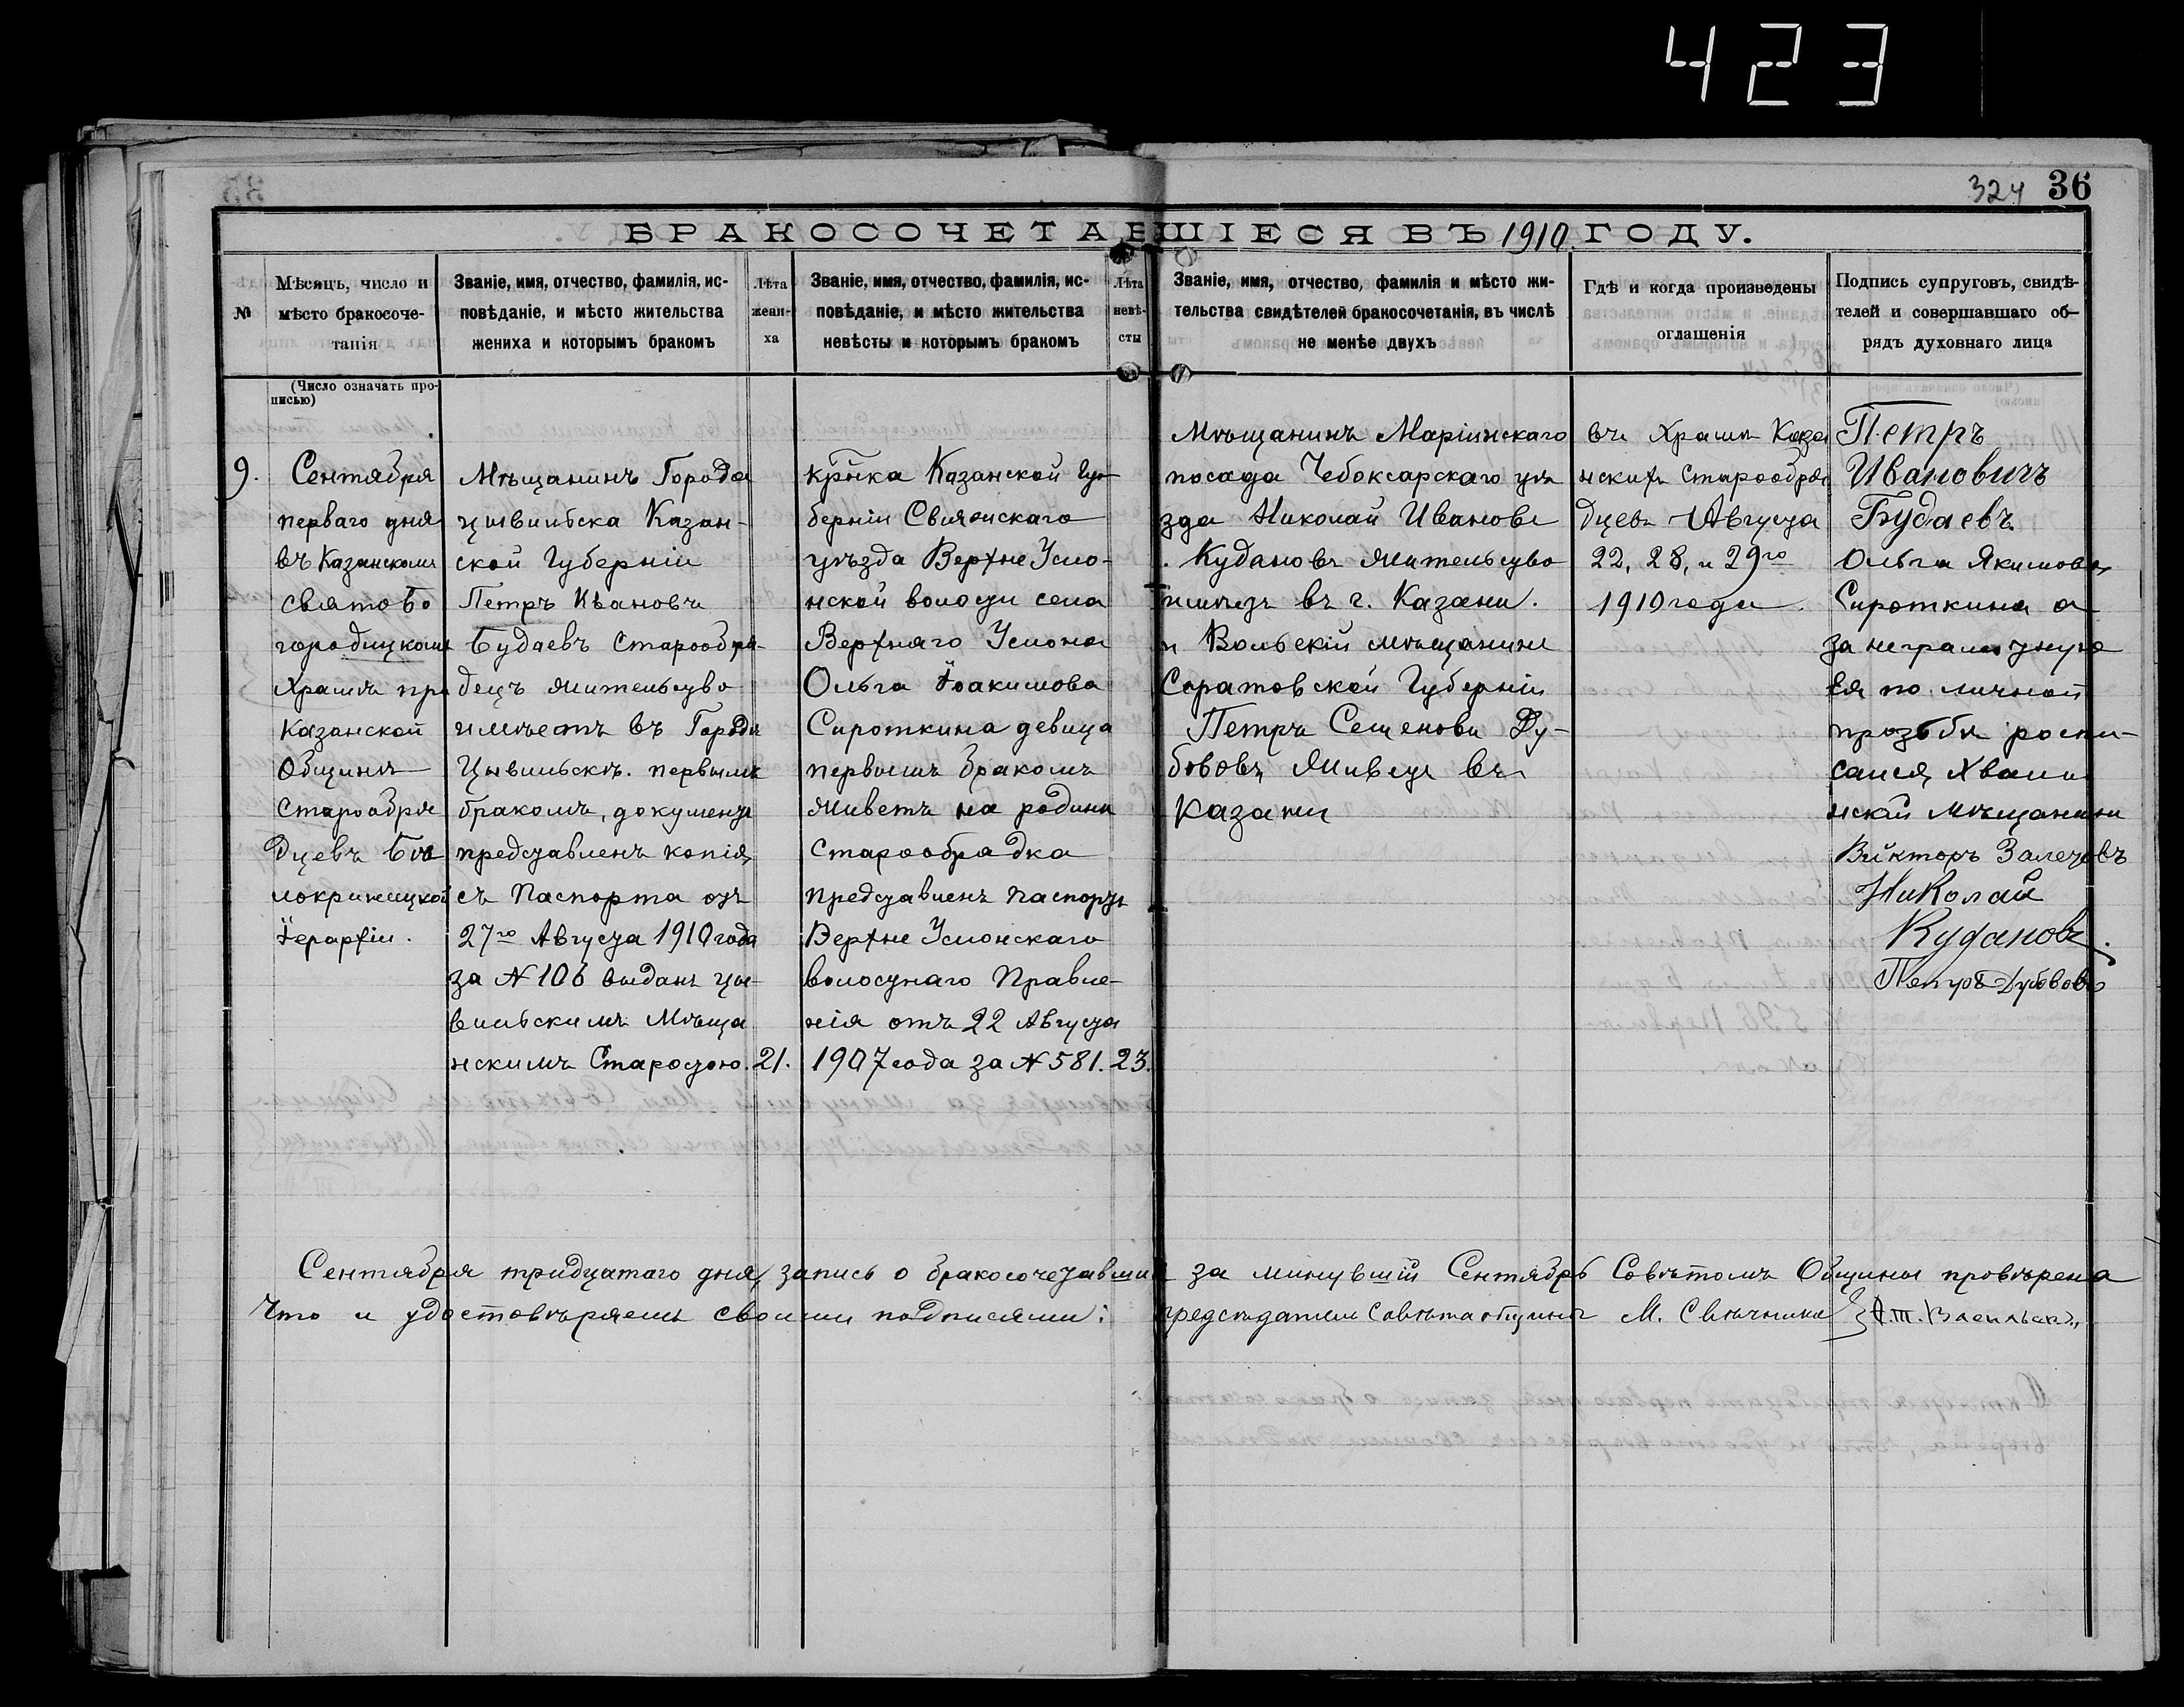 423
324 36
БРАКОСОЧЕТАВШІЕСЯ ВЪ 1910 ГОДУ.
№
Мѣсяцъ, число и
мѣсто бракосоче-
танія
(Число означать про-
писью)
Званіе, имя, отчество, фамилія, ис-
повѣданіе, и мѣсто жительства
жениха и которымъ бракомъ
Лѣта
жени-
ха
Званіе, имя, отчество, фамилія, ис-
повѣданіе, и мѣсто жительства
невѣсты и которымъ бракомъ
Лѣта
невѣ-
сты
Званіе, имя, отчество, фамилія и мѣсто жи-
тельства свидѣтелей бракосочетанія, въ числѣ
не менѣе двухъ
Гдѣ и когда произведены
оглашенія
Подпись супруговъ, свидѣ-
телей и совершавшаго об-
рядъ духовнаго лица
9.
Сентября
перваго дня
въ Казанскомъ
Свято Бо
городицкомъ
Храмѣ при
Казанской
Общинѣ
Старообря
дцевъ Бѣ
локриницкой
Іерархіи.
Мѣщанинъ Города
Цывильска Казан-
ской Губерніи
Петръ Ивановъ
Будаевъ Старообря-
децъ Жительство
имѣетъ въ Городѣ
Цывильскѣ. первымъ
бракомъ, документъ
представленъ копія
съ Паспорта отъ
27го Августа 1910 года
за № 106 выданъ Цы-
вильскимъ Мѣща
нскимъ Старостою.
21.
кр̃нка Казанской Гу-
берніи Свіяжскаго
уѣзда Верхне Усло-
нской волости села
Верхняго Услона
Ольга Іоакимова
Сироткина девица
первымъ бракомъ
Живетъ на родинѣ
Старообрядка
представленъ паспортъ
Верхне Услонскаго
волостнаго Правле-
нія отъ 22 Августа
1907 года за № 581.
23.
Мѣщанинъ Маріинскаго
посада Чебоксарскаго уѣ
зда Николай Ивановъ
Кудановъ Жительство
имѣетъ въ г. Казани.
и Вольскій мѣщанинъ
Саратовской Губерніи
Петръ Семеновъ Ду-
бововъ, Живетъ въ
Казани
въ Храмѣ Каза
нскихъ Старообря
дцевъ Августа
22, 28, и 29го
1910 года.
Петръ
Ивановичъ
Будаевъ
Ольга Якимова
Сироткина а
за неграмотную
Ея по личной
прозьбѣ роспи-
сался Хвалы
нскій мѣщанинъ
Викторъ Залетовъ
Николай
Кудановъ.
Петръ Дубововъ
Сентября тридцатаго дня, запись о бракосочетавших за минувшій Сентябрь Совѣтомъ Общины провѣрена
Что и удостовѣряемъ своими подписями: председатель Совѣта общины М. Свѣчников